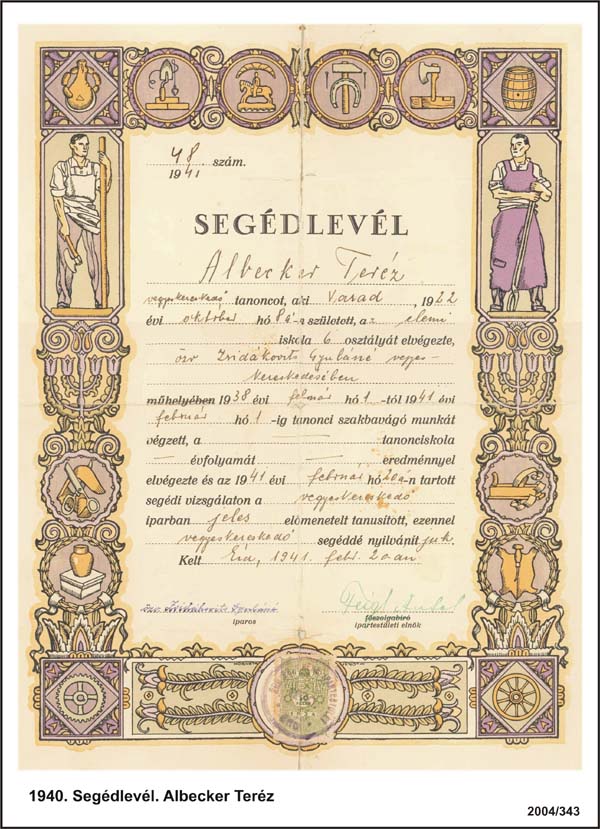 48.
1941 szám.
SEGÉDLEVÉL
Albecker Teréz
vegyeskereskedő tanoncot, aki Varad, 1922
évi október hó 8á-n született, a elemi
iskola 6 osztályát elvégezte,
özv Zsidákovits Gyuláné vegyes-
kereskedésében
műhelyében 1938 évi február hó 1-tól 1941 évi
február hó 1-ig tanonci szakbavágó munkát
végzett, a tanonciskola
évfolyamát eredménnyel
elvégezte és az 1941 évi február hó 20á-n tartott
segédi vizsgálaton a vegyeskereskedő
iparban jeles előmenetelt tanusitott, ezennel
vegyeskereskedő segéddé nyilvánitjuk.
Kelt Érd, 1941. febr. 20-án
özv Zsidákovits Gyuláné
iparos
főszolgabíró
ipartestületi elnök
1940. Segédlevél. Albecker Teréz
2004/343